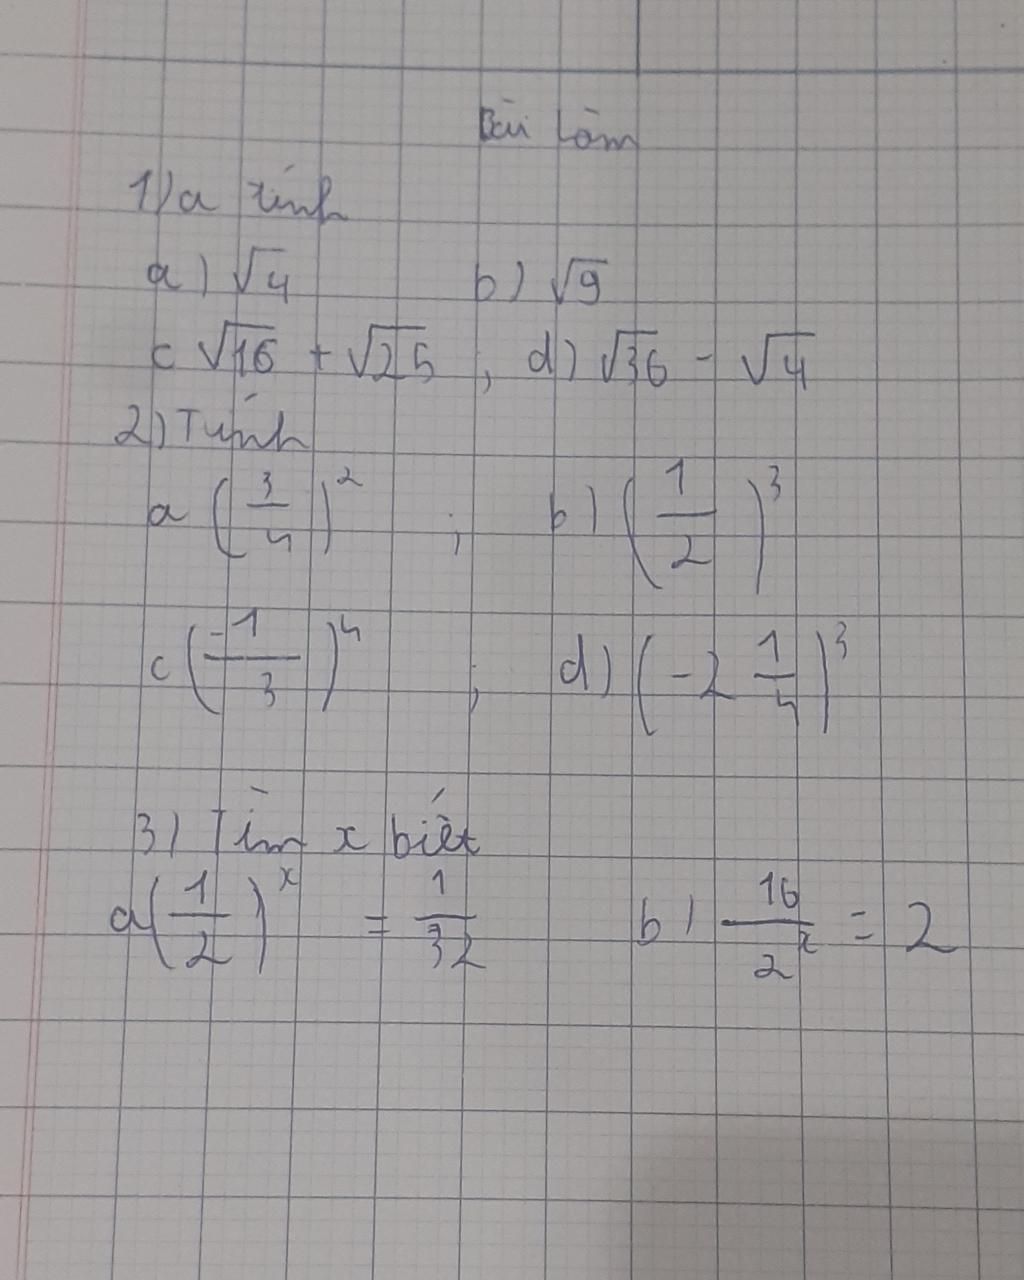 Bài làm
1) a tính
a) √4 b) √9
c √16 + √25 ; d) √36 - √4
2) Tính
a (3/4)² ; b) (1/2)³
c (-1/3)⁴ ; d) (-2 1/4)³
3) Tìm x biết
a (1/2)^x = 1/32 b) 16/2^x = 2